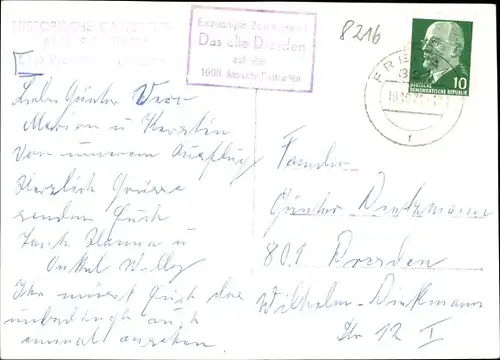 HISTORISCHE GASTSTÄTTE
Einzigartiges Zeitdokument
Das alte Dresden
auf über
1000 Ansichts-Postkarten
8216
10
DEUTSCHE
DEMOKRATISCHE REPUBLIK
Liebe Günter Vera
Marion u Kerstin
Von unserem Ausflug
Herzlich Grüsse
senden Euch
Tante Hanna u
Onkel Willy
Ihr müsst Euch das
unbedingt auch
einmal ansehen
Familie
Günter
801 Dresden
Wilhelm-
Str 12 I